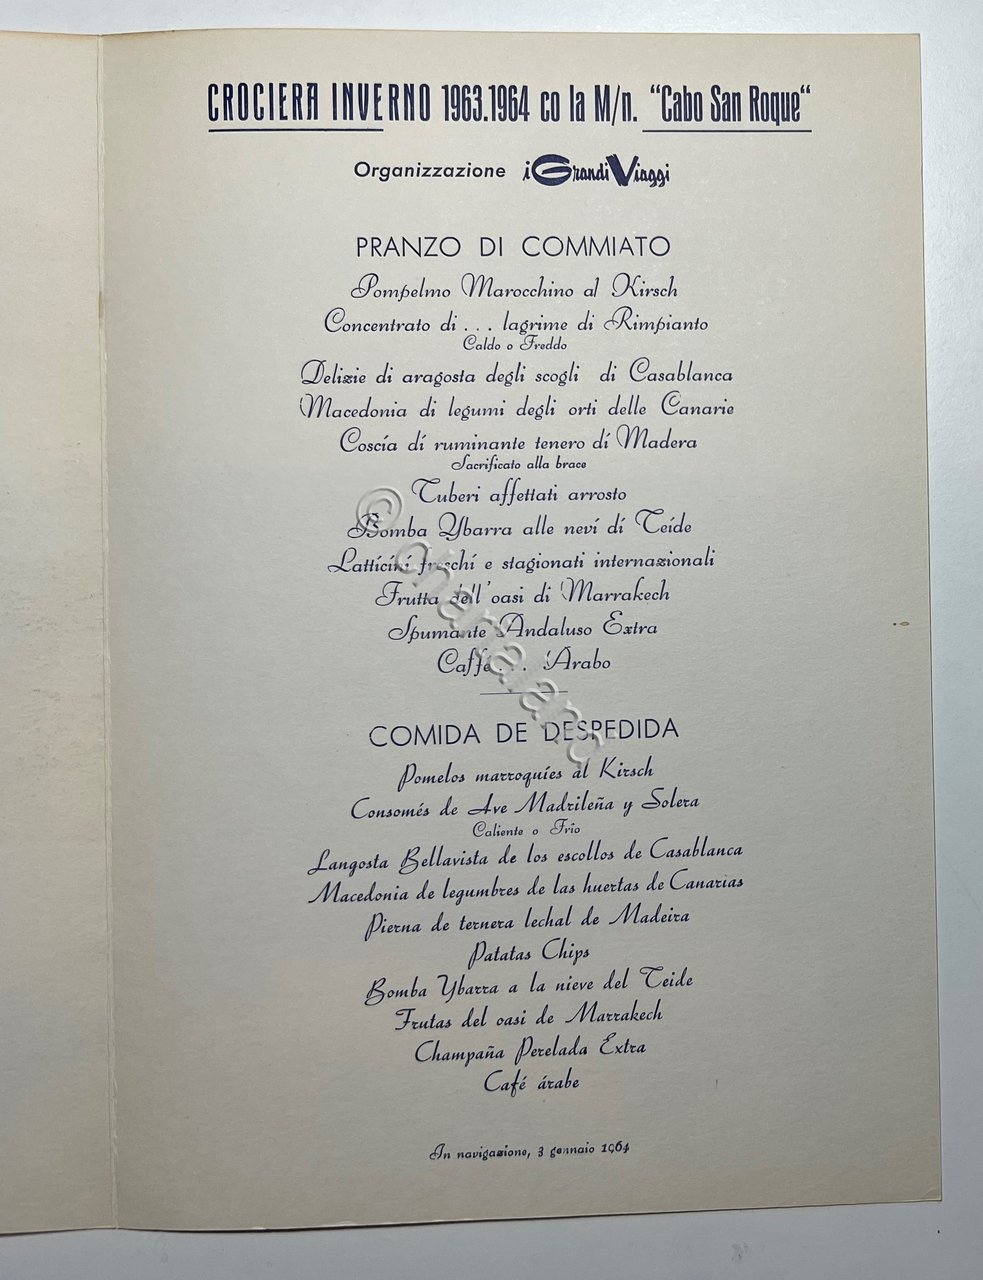 CROCIERA INVERNO 1963.1964 co la M/n. "Cabo San Roque"
Organizzazione i Grandi Viaggi
PRANZO DI COMMIATO
Pompelmo Marocchino al Kirsch
Concentrato di . . . lagrime di Rimpianto
Caldo o Freddo
Delizie di aragosta degli scogli di Casablanca
Macedonia di legumi degli orti delle Canarie
Coscia di ruminante tenero di Madera
Sacrificato alla brace
Tuberi affettati arrosto
Bomba Ybarra alle nevi di Teide
Latticini freschi e stagionati internazionali
Frutta dell'oasi di Marrakech
Spumante Andaluso Extra
Caffe . . . Arabo
COMIDA DE DESPEDIDA
Pomelos marroquíes al Kirsch
Consomés de Ave Madrileña y Solera
Caliente o Frío
Langosta Bellavista de los escollos de Casablanca
Macedonia de legumbres de las huertas de Canarias
Pierna de ternera lechal de Madeira
Patatas Chips
Bomba Ybarra a la nieve del Teide
Frutas del oasi de Marrakech
Champaña Perelada Extra
Café árabe
In navigazione, 3 gennaio 1964